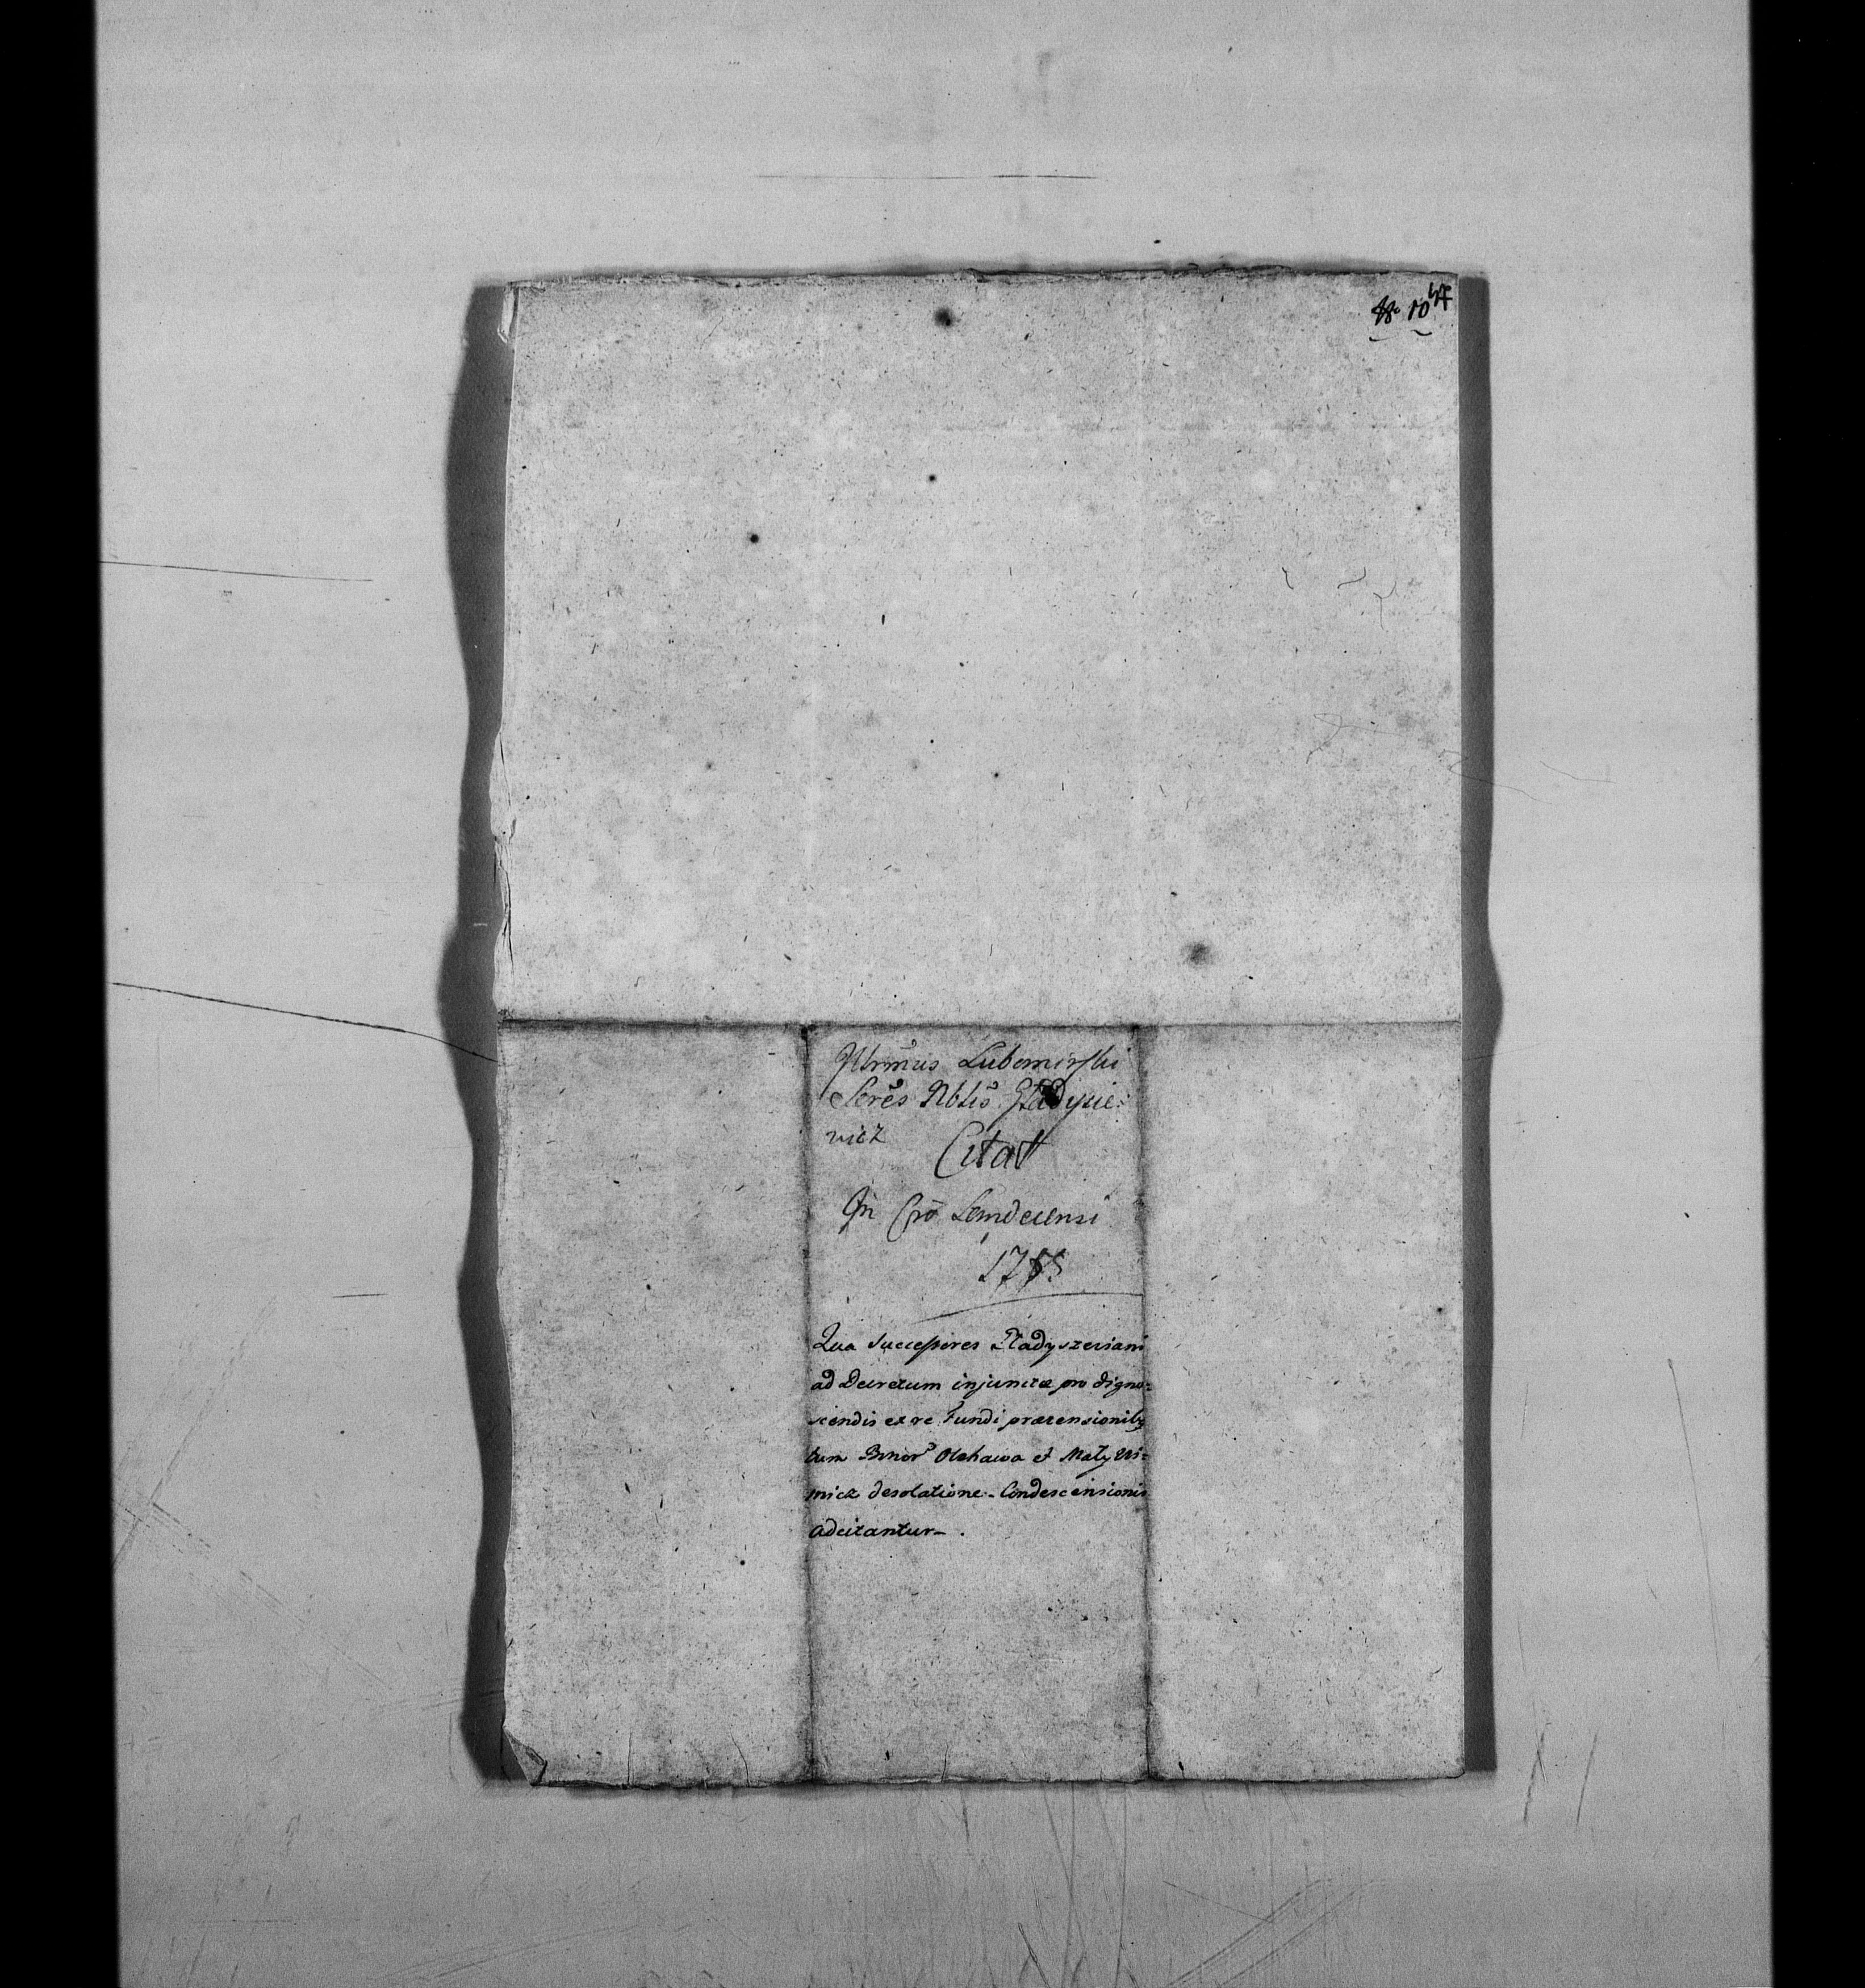 No 10
Illrmus Lubomirski
Scres Nblis Gładysie:
wicz
Citat
In Cpo Lemdecensi
1785
Qua Successores Gładyszeviani
ad Decretum injunctæ pro digno=
scendis ex re Fundi prætensionibq
tum Bnor Olchawa et Mały Wi=
snicz desolatione Condescensionis
adcitantur.